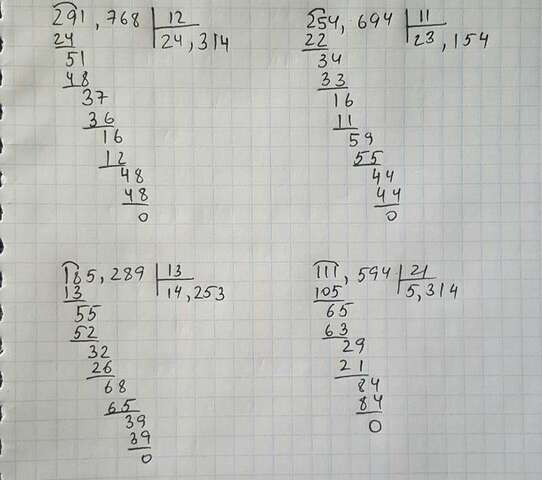 291,768 12
24 24,314
51
48
37
36
16
12
48
48
0
254,694 11
22 23,154
34
33
16
11
59
55
44
44
0
185,289 13
13 14,253
55
52
32
26
68
65
39
39
0
111,594 21
105 5,314
65
63
29
21
84
84
0